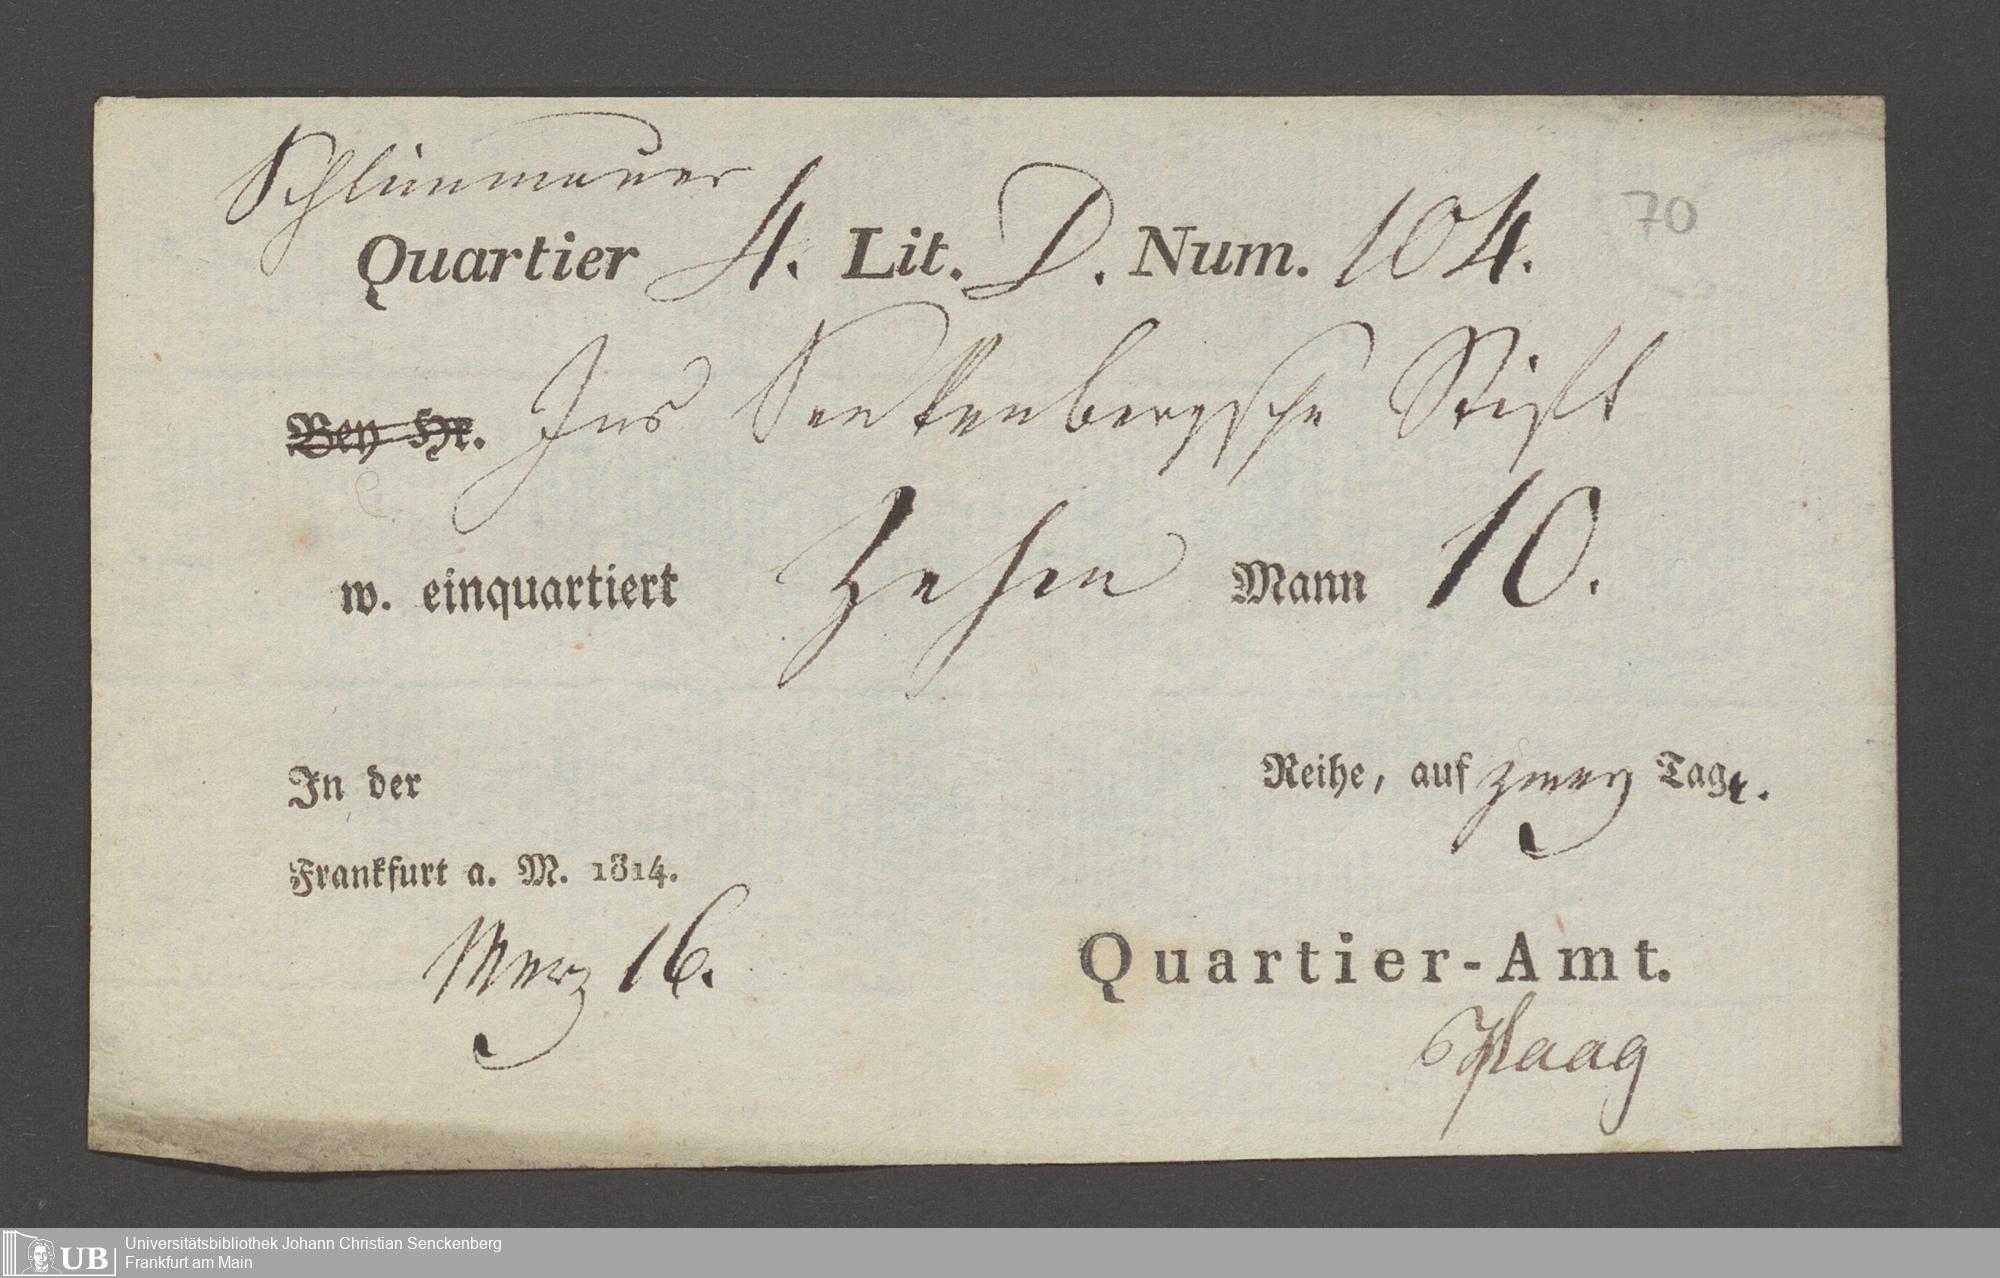 Schlimmauer
70
Quartier 4. Lit. D. Num. 104.
Bey Hr. Ins Senkenbergsche Stift
w. einquartiert Zehen Mann 10.
In der Reihe, auf zwey Tage.
Frankfurt a. M. 1814.
Merz 16.
Quartier-Amt.
Haag
UB
Universitätsbibliothek Johann Christian Senckenberg
Frankfurt am Main